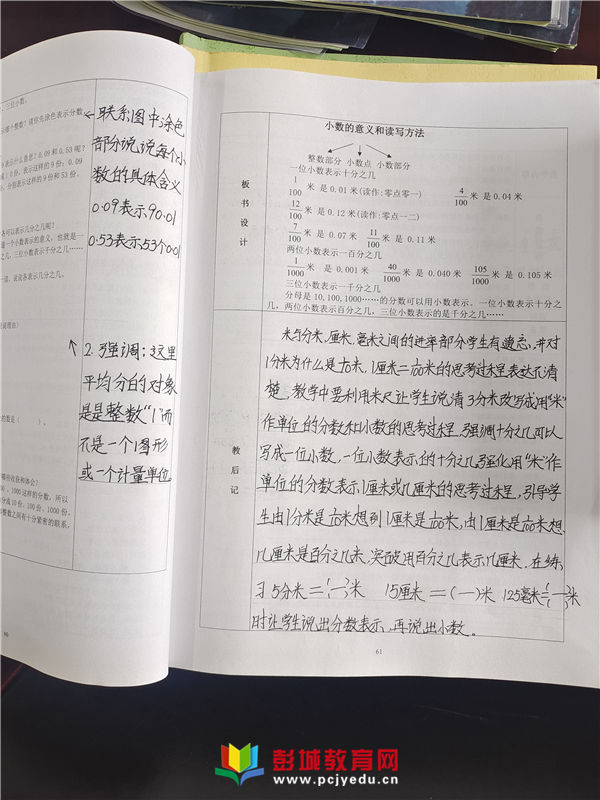 、三位小数。
示哪个整数？请你先涂色表示分数
表示什么意思？0.09 和 0.53 呢？
成 10 份，表示这样的 9 份；0.09
份，分别表示这样的 9 份和 53 份，
各可以表示几分之几呢？
通一个小数表示的意义，也就是一
之几，三位小数表示千分之几……
一读，说说各表示几分之几。
说理由）
的数是（ ）。
哪些收获和体会？
00、1000 这样的分数，所以
分成 10 份、100 份、1000 份，
整数之间有十分紧密的联系，
←联系图中涂色
部分说说每个小
数的具体含义
0.09表示9个0.01
0.53表示53个0.01
↖ 2.强调：这里
平均分的对象
是是整数“1”而
不是一个图形
或一个计量单位
60
板书设计
小数的意义和读写方法
整数部分 小数点 小数部分
一位小数表示十分之几
1/100 米 是 0.01 米(读作:零点零一) 4/100 米 是 0.04 米
12/100 米 是 0.12 米(读作:零点一二)
7/100 米 是 0.07 米 11/100 米 是 0.11 米
两位小数表示一百分之几
1/1000 米 是 0.001 米 40/1000 米 是 0.040 米 105/1000 米 是 0.105 米
三位小数表示一千分之几
分母是 10,100,1000……的分数可以用小数表示。一位小数表示十分之
几，两位小数表示百分之几，三位小数表示的是千分之几……
教后记
米与分米、厘米、毫米之间的进率部分学生有遗忘，并对
1分米为什么是1/10米，1厘米=1/100米的思考过程表达不清
楚。教学中要利用米尺让学生说清3分米改写成用“米”
作单位的分数和小数的思考过程，强调十分之几可以
写成一位小数，一位小数表示的十分之几强化用“米”作
单位的分数表示1厘米或几厘米的思考过程，引导学
生由1分米是1/10米想到1厘米是1/100米，由1厘米是1/100米想
几厘米是百分之几米，突破用百分之几表示几厘米。在练
习 5分米=( — )米 15厘米=( — )米 125毫米=( — )米
时让学生说出分数表示，再说出小数。
61
彭城教育网
www.pcjyedu.cn